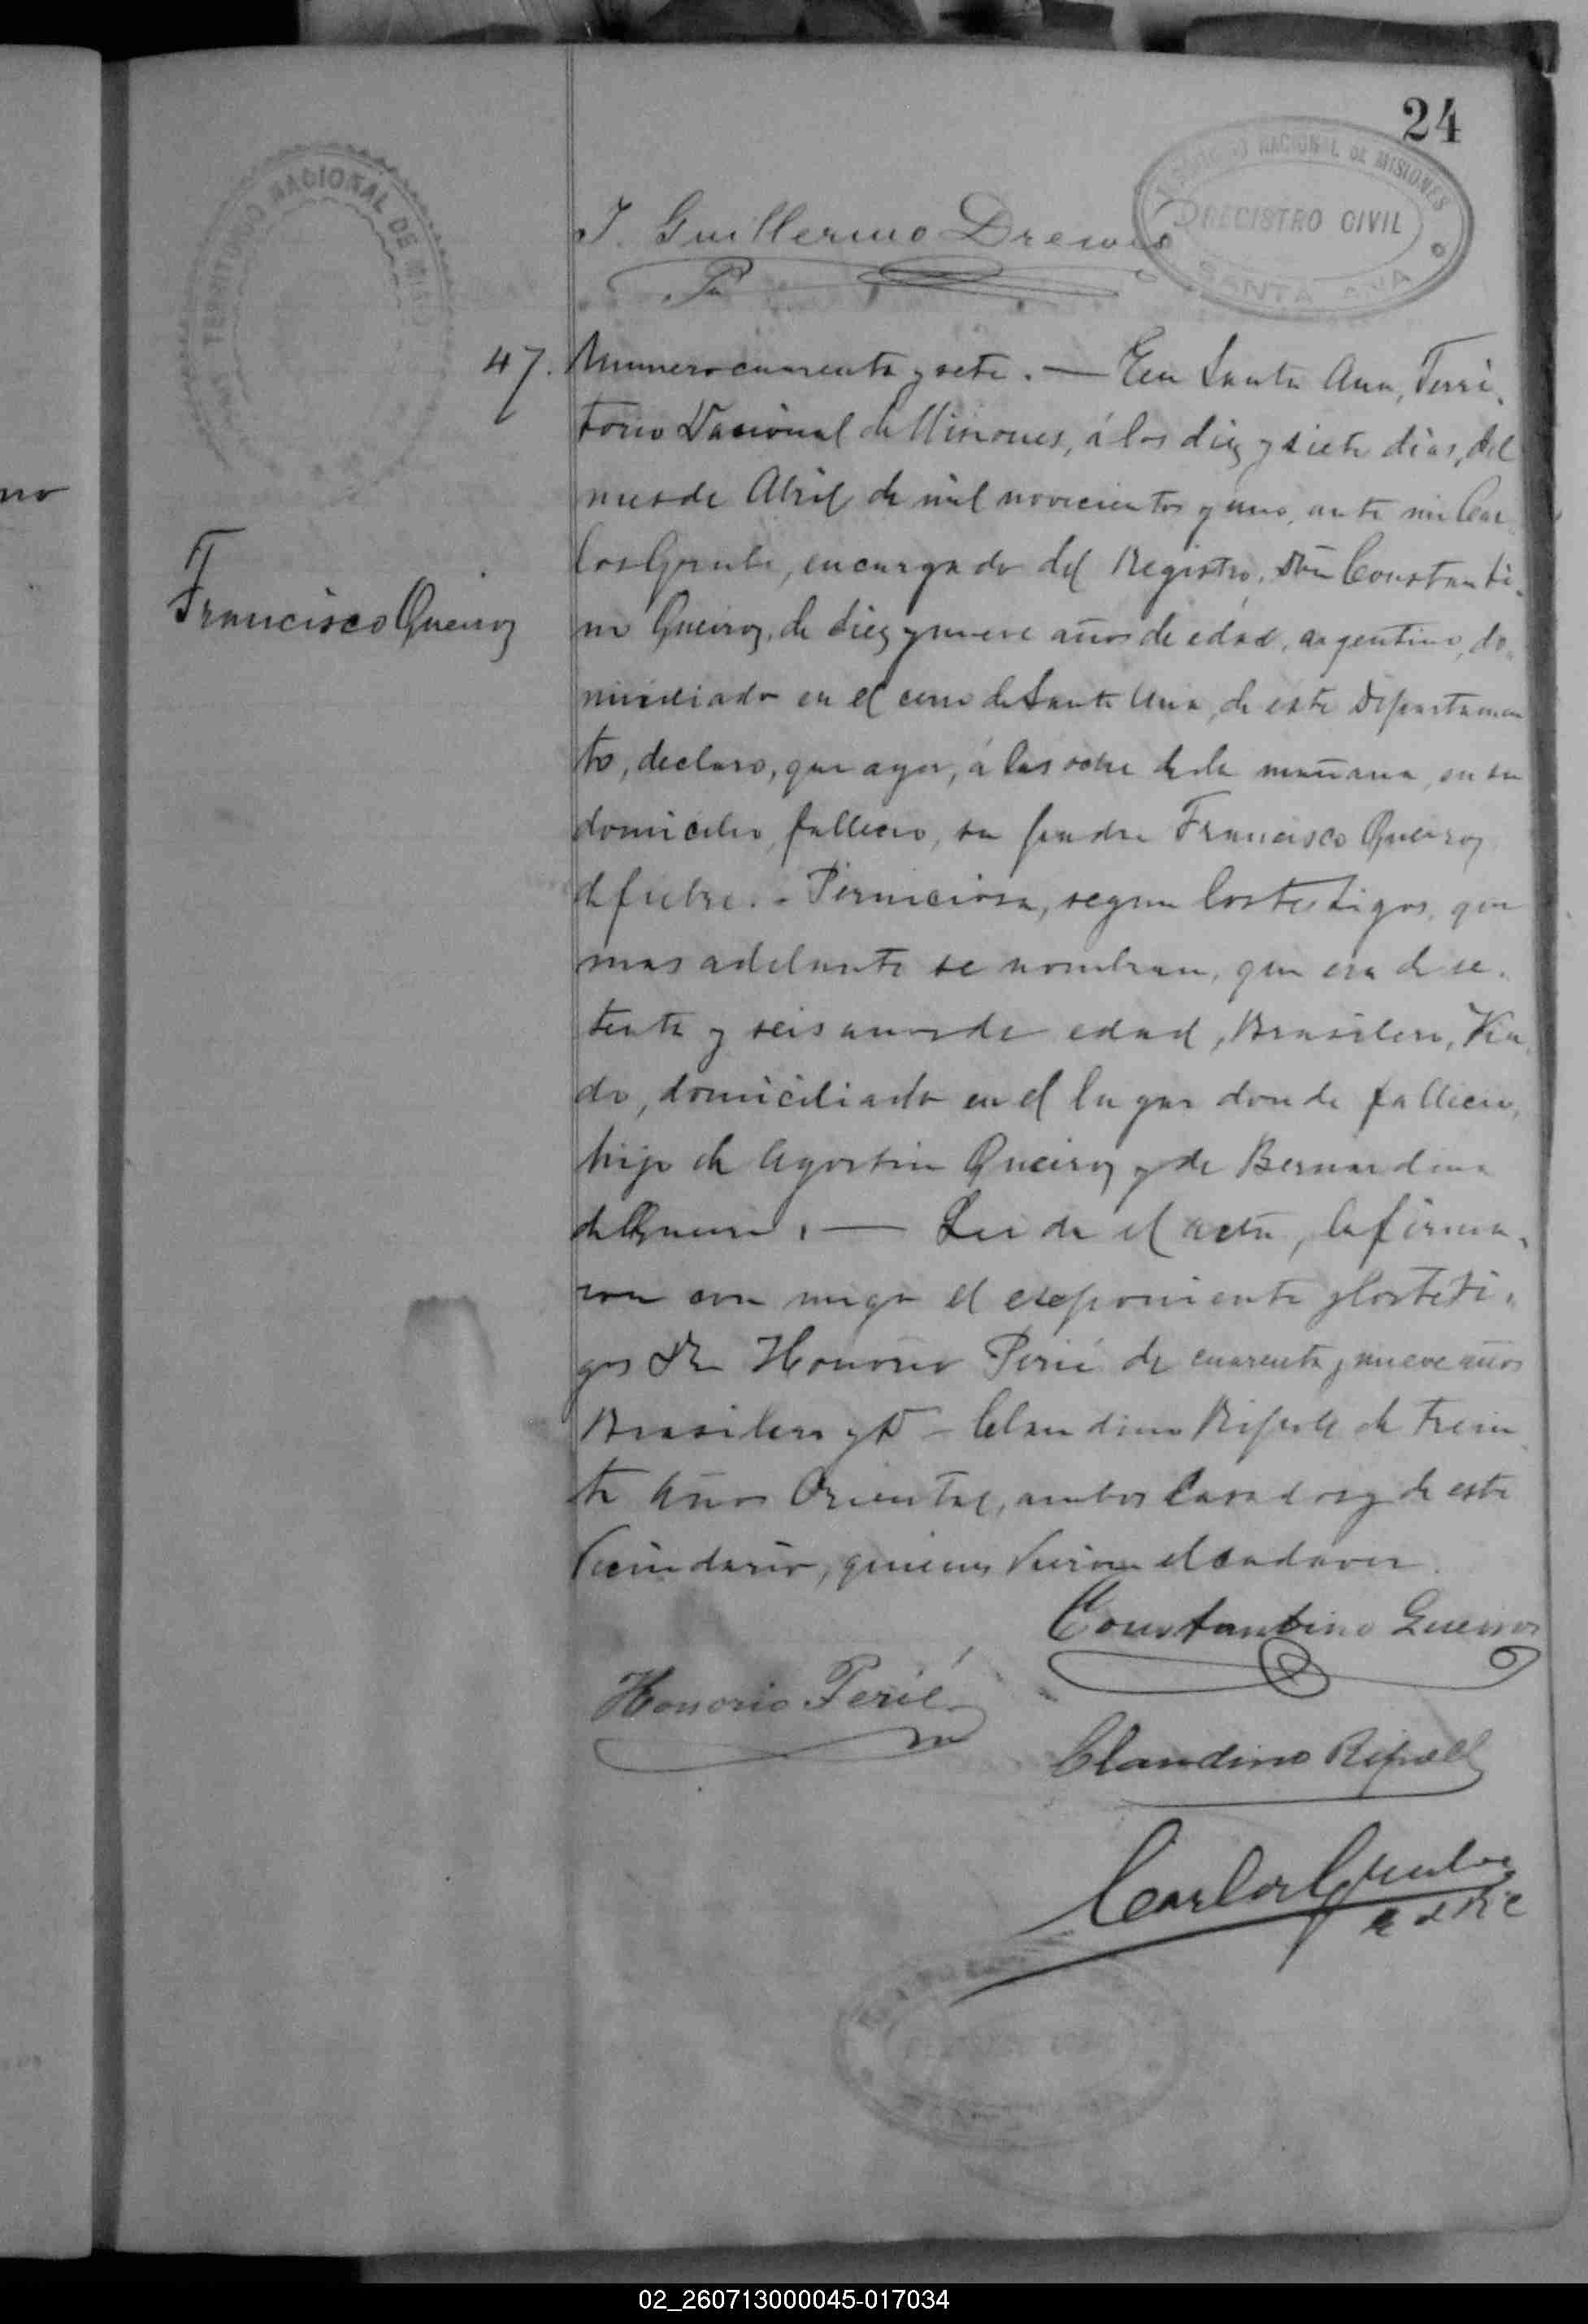 24
TERRITORIO NACIONAL DE MISIONES
REGISTRO CIVIL
SANTA ANA
TERRITORIO NACIONAL DE MISIO
J. Guillermo Drewes
47. Numero cuarenta y sete. — En Santa Ana, Terri
torio Nacional de Misiones, á los diez y siete dias, del
mes de Abril de mil novecientos y uno, ante mi Car
los Gruber, encargado del Registro, Don Constanti
no Queiroz, de diez y nueve años de edad, argentino, do
miciliado en el cerro de Santa Ana, de este Departamen
to, declaro, que ayer, á las ocho de la mañana, en su
domicilio, fallecio, su padre Francisco Queiroz
de fiebre. - Perniciosa, segun los testigos, que
mas adelante se nombran, que era de se
tenta y seis anos de edad, Brasilero, Viu
do, domiciliado en el lugar donde fallecio,
hijo de Agostin Queiroz y de Bernardina
de Queiroz. — Leida el acta, la firma
ron con migo el exponiente y los testi
gos Dn Honorio Perié de cuarenta y nueve años
Brasilero y D - Claudino Ripoll de trein
ta años Oriental, ambos Casados y de este
Vecindario, quienes vieron el cadaver.
Francisco Queiroz
Constantino Queiros
Honorio Perié
Claudino Ripoll
Carlos Gruber
no
02_260713000045-017034